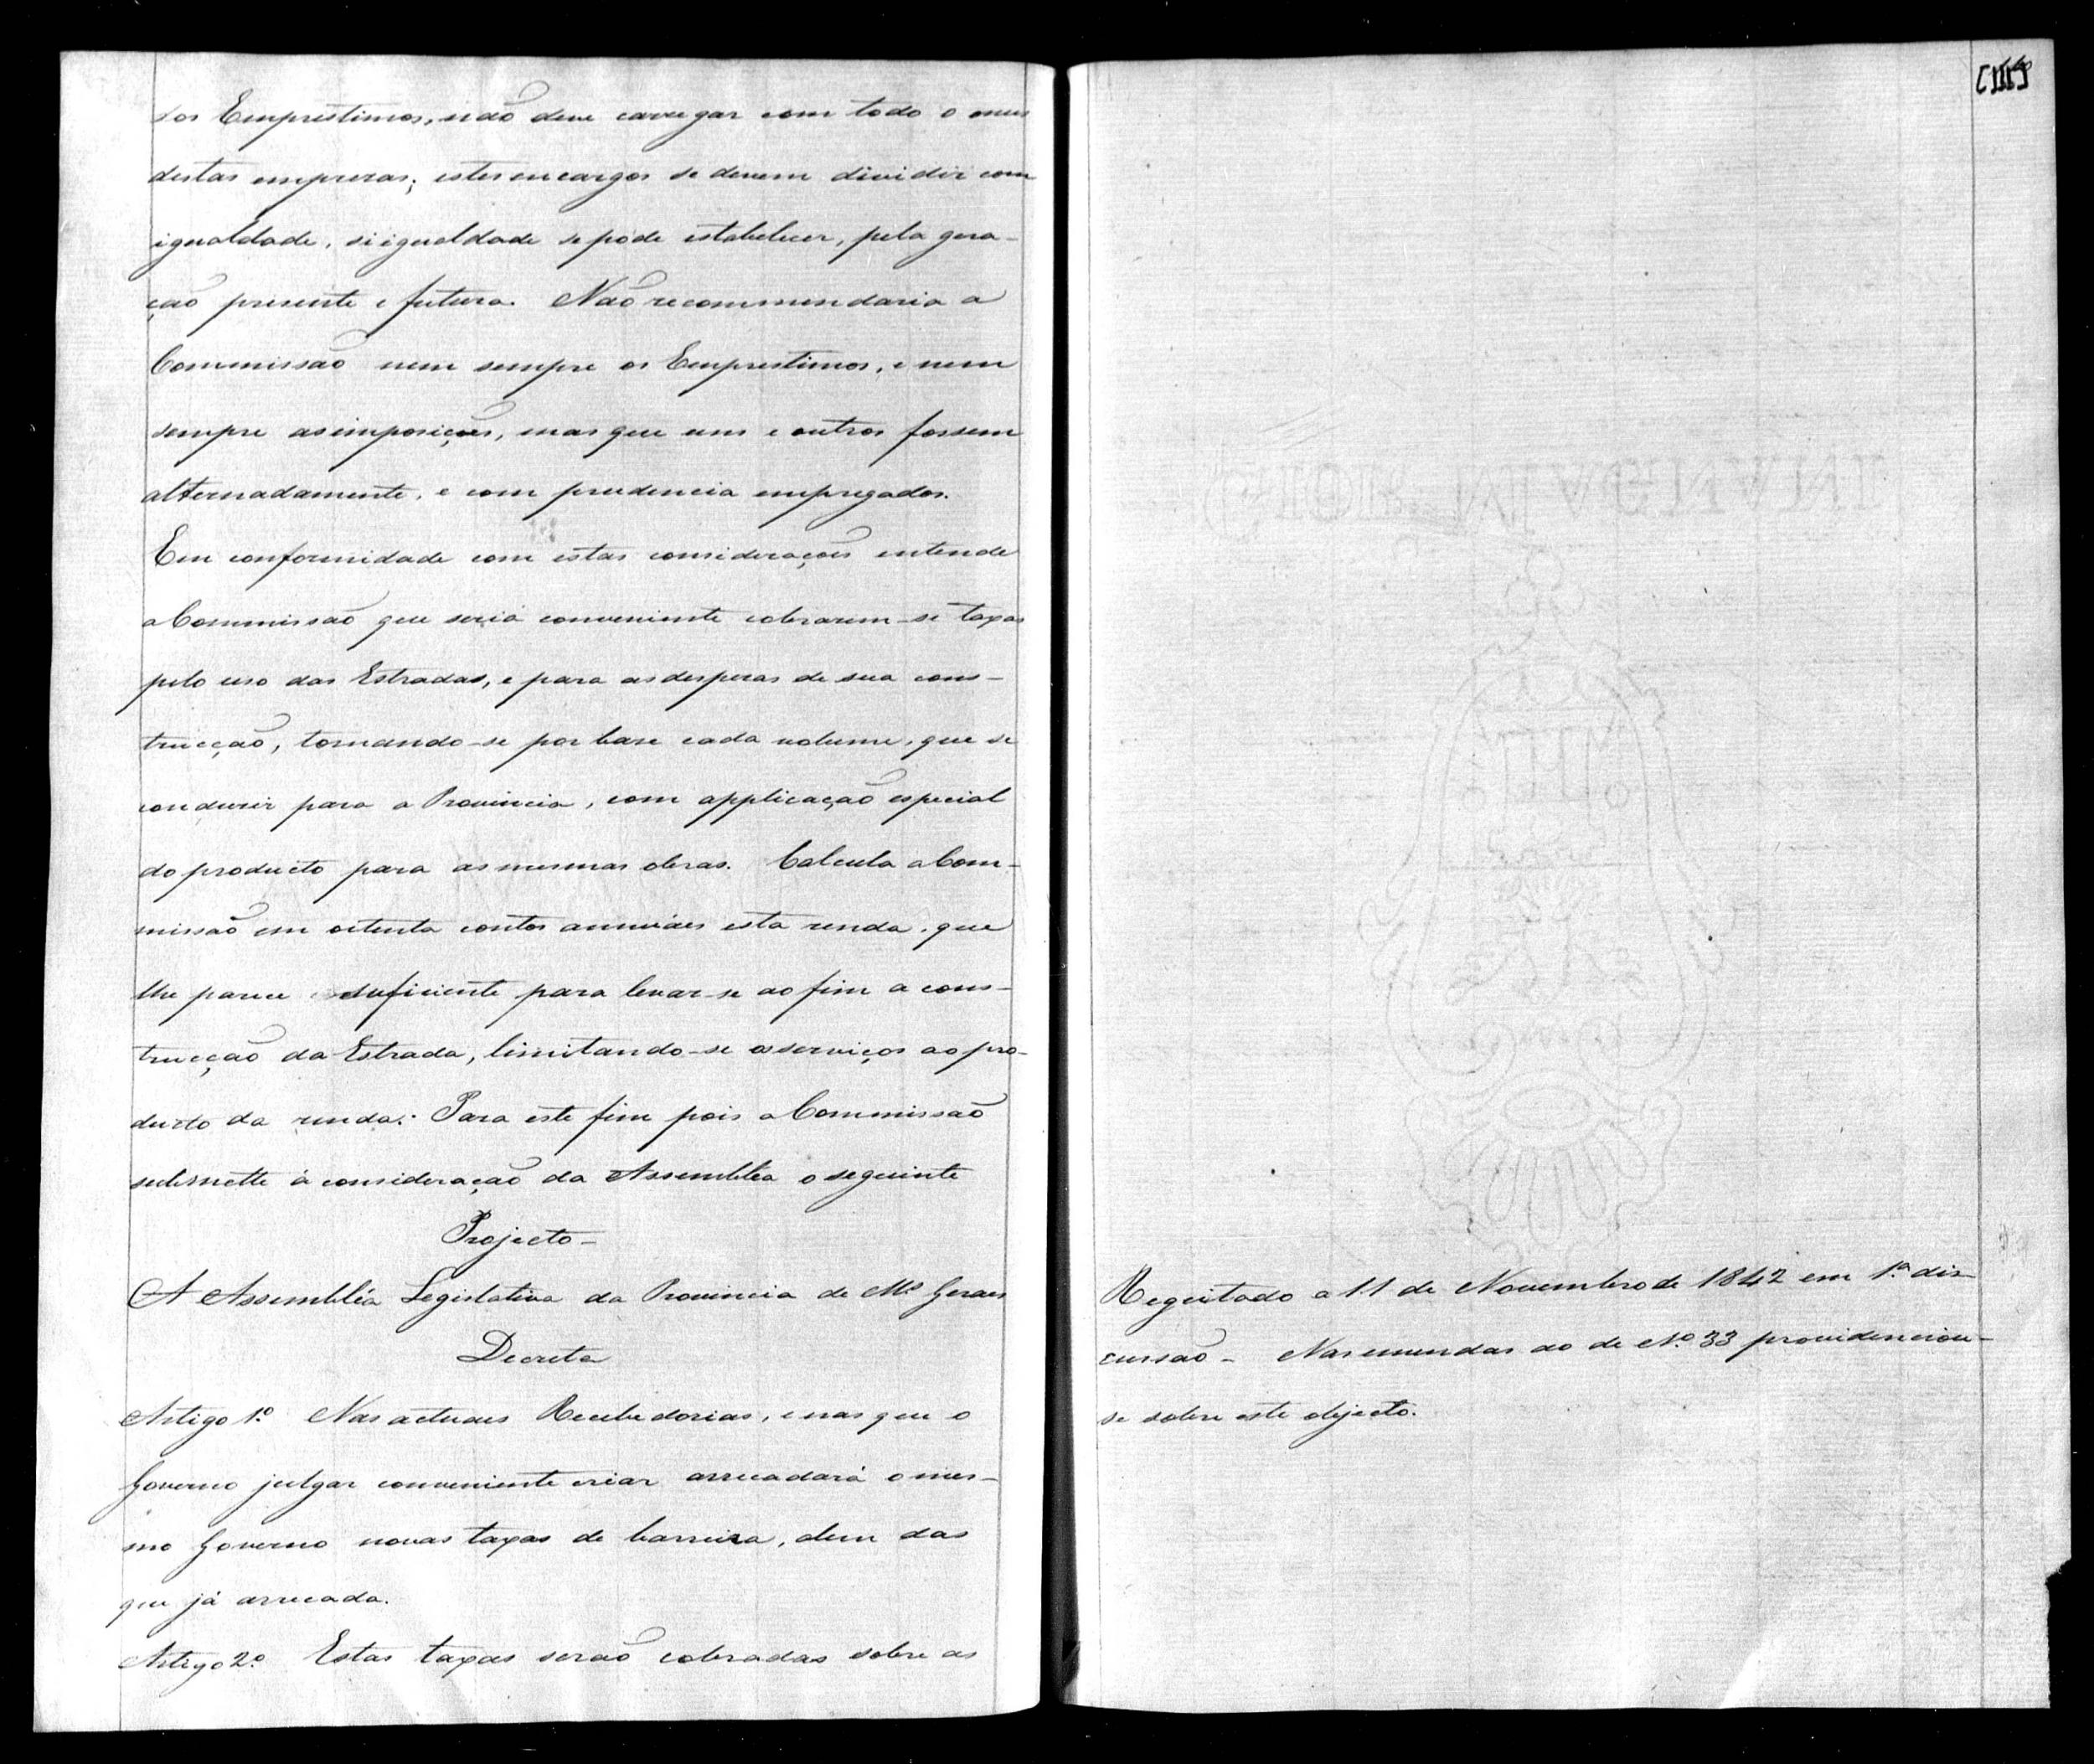 dos Emprestimos, não deve carregar com todo o onus
destas emprezas; estes encargos se devem dividir com
igualdade, si igualdade se póde estabelecer, pela gera-
ção presente e futura. Não recommendaria a
Commissão nem sempre os Emprestimos, e nem
sempre as imposições, mas que uns e outros fossem
alternadamente, e com prudencia empregados.
Em conformidade com estas considerações entende
a Commissão que seria conveniente cobrarem-se taxas
pelo uso das Estradas, e para as despezas de sua cons-
trucção, tomando-se por base cada volume, que se
conduzir para a Provincia, com applicação especial
do producto para as mesmas obras. Calcula a Com-
missão em oitenta contos annuáes esta renda, que
lhe parece suficiente para levar-se ao fim a cons-
trucção da Estrada, limitando-se os serviços ao pro-
ducto da renda. Para este fim pois a Commissão
submette á consideração da Assembléa o seguinte
Projecto-
A Assembléa Legislativa da Provincia de Ms Geraes
Decreta
Artigo 1.º Nas actuaes Recebedorias, e nas que o
Governo julgar conveniente criar arrecadará o mes-
mo Governo novas taxas de barreira, alem das
que já arrecada.
Artigo 2.º Estas taxas serão cobradas sobre as
Regeitado a 11 de Novembro de 1842 em 1.ª dis-
cussão - Nas emendas ao de N.º 33 providenciou-
se sobre este objecto.